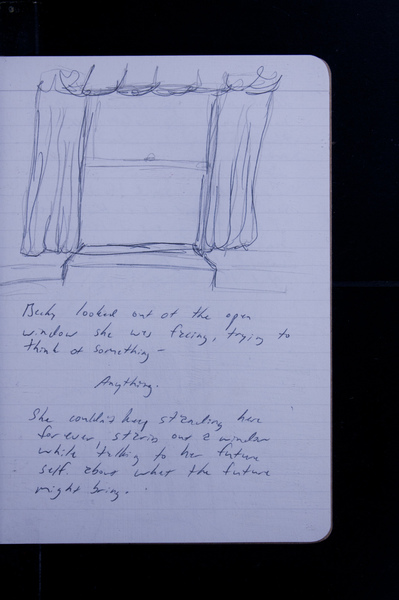 Becky looked out of the open
window she was facing, trying to
think of something –
Anything.
She couldn't keep standing here
forever staring out a window
while talking to her future
self about what the future
might bring.